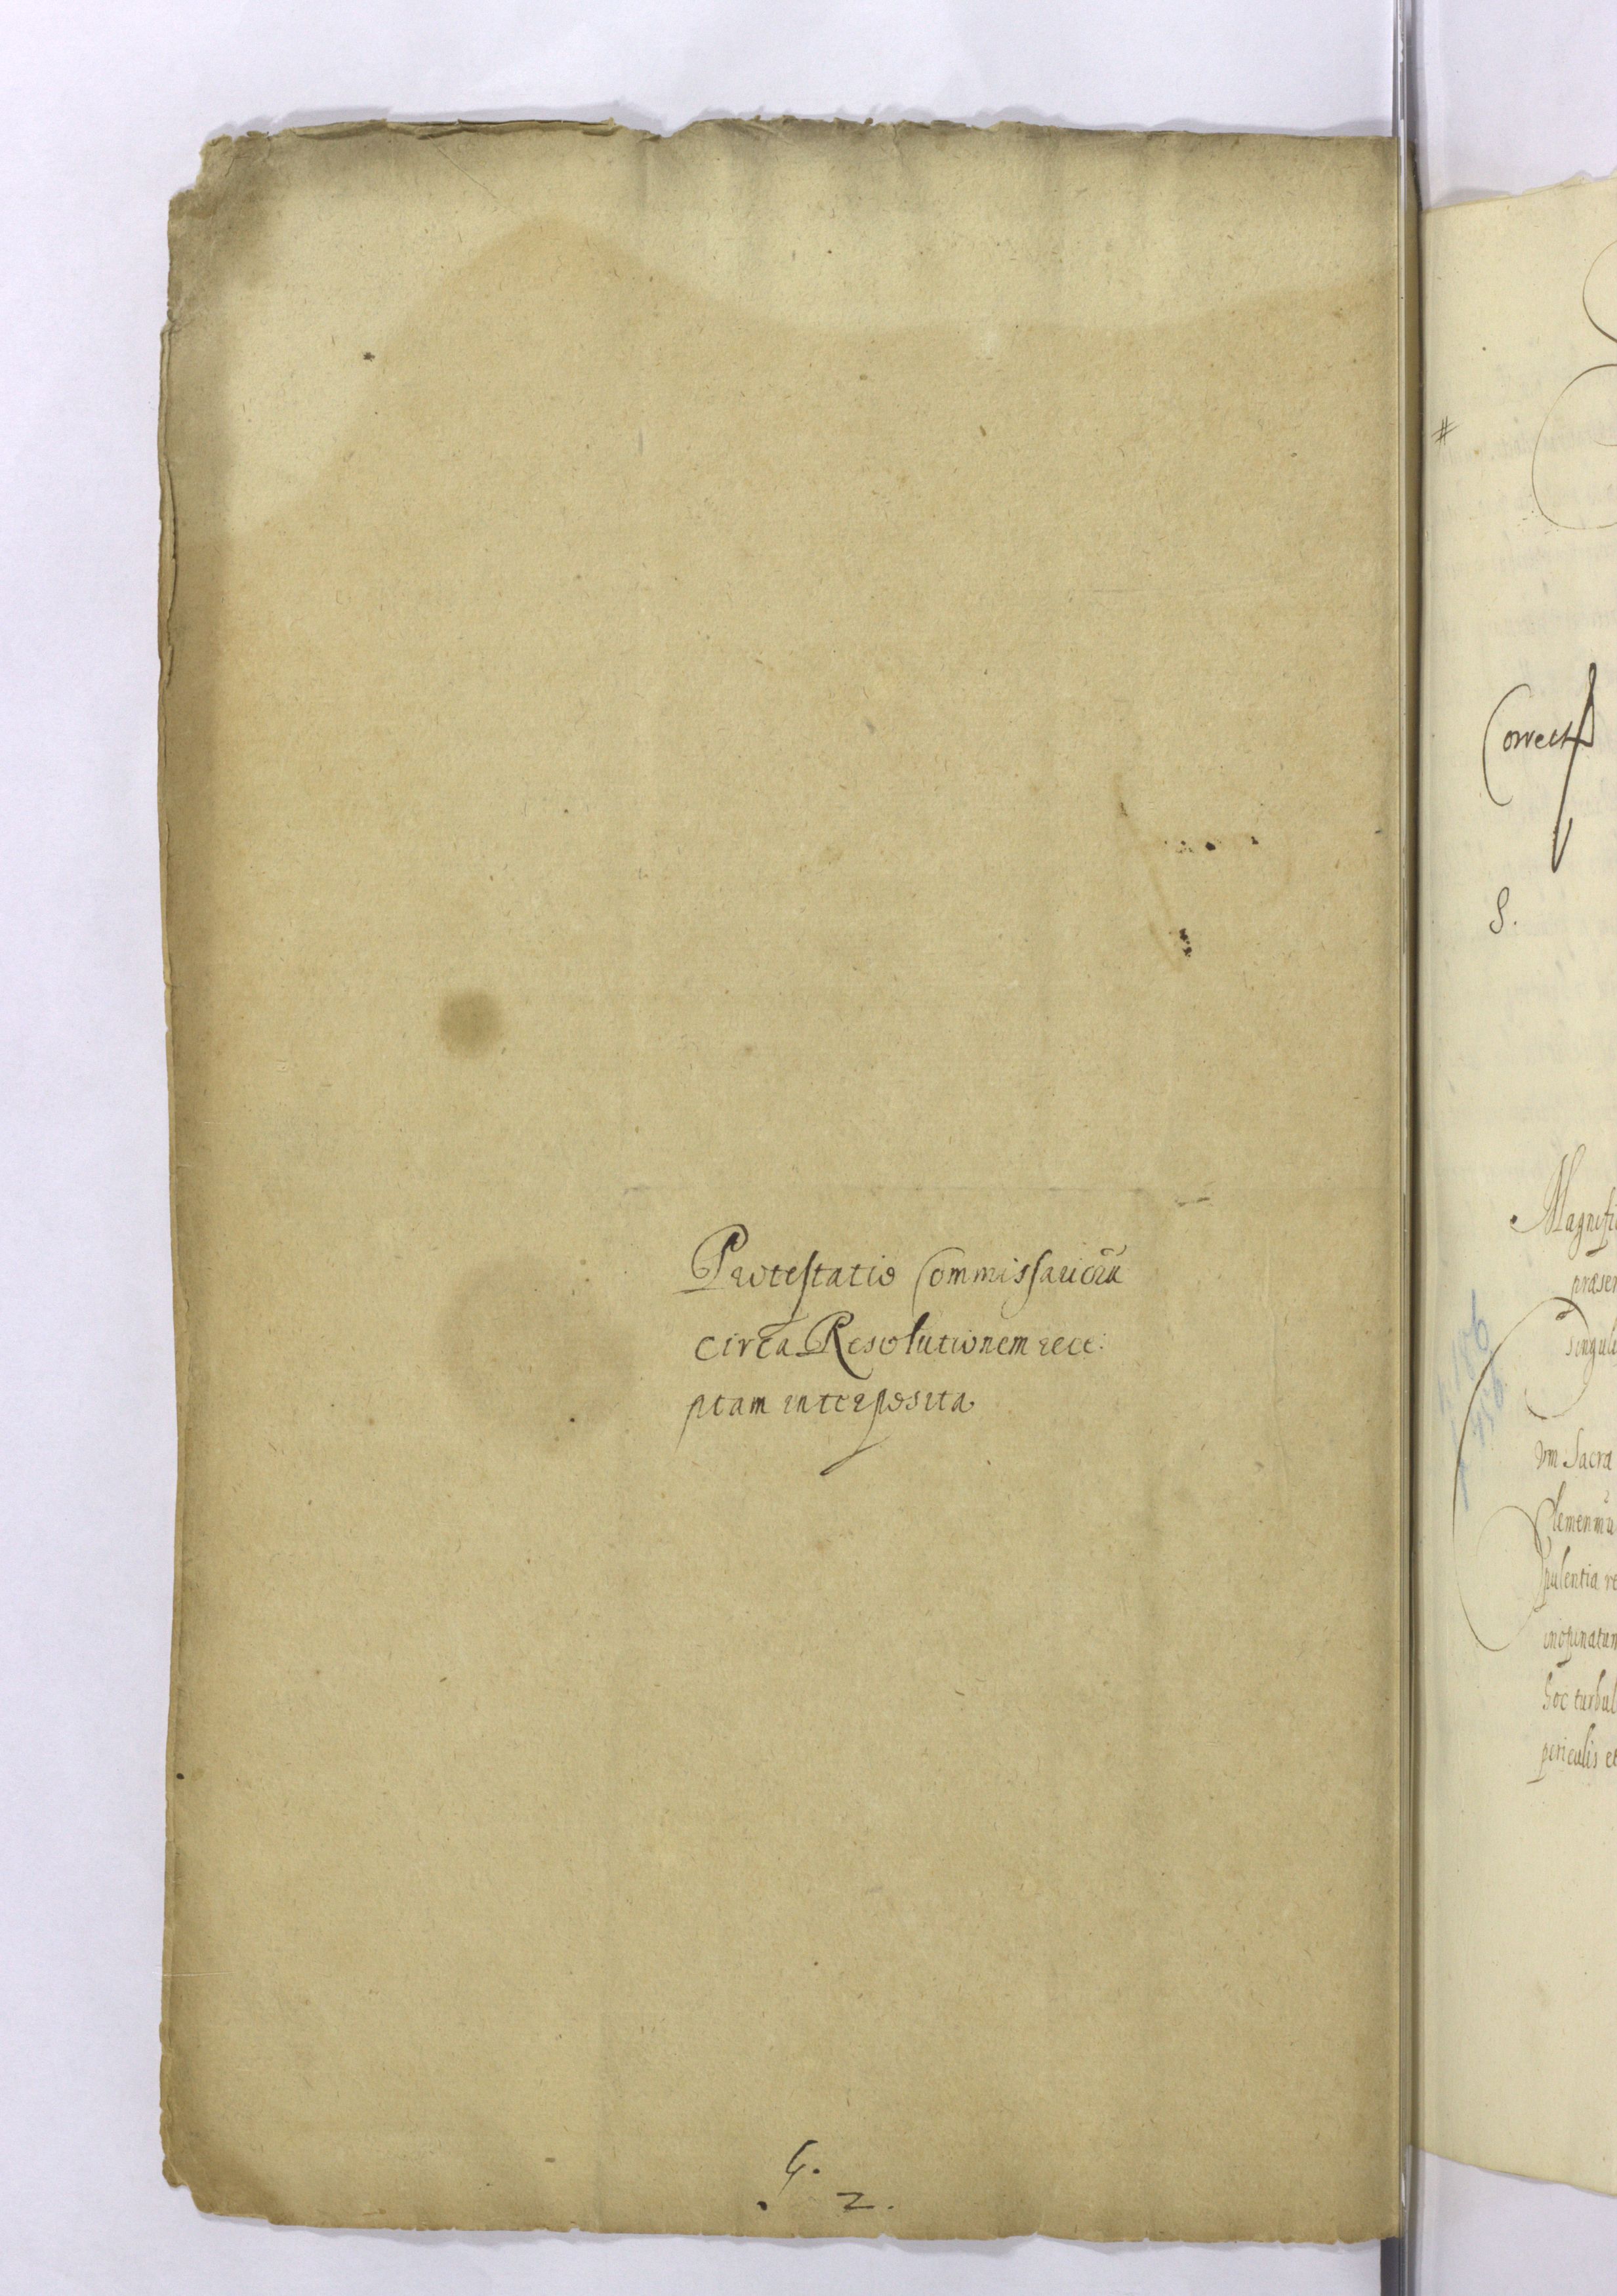 Protestatio Commissariorũ
circa Resolutionem rece:
ptam interposita
G.
2.
#
Correct
S.
Magnifi
præsen
singul
um Sacra
pulentia re
inopinatum
hoc turbul
periculis et